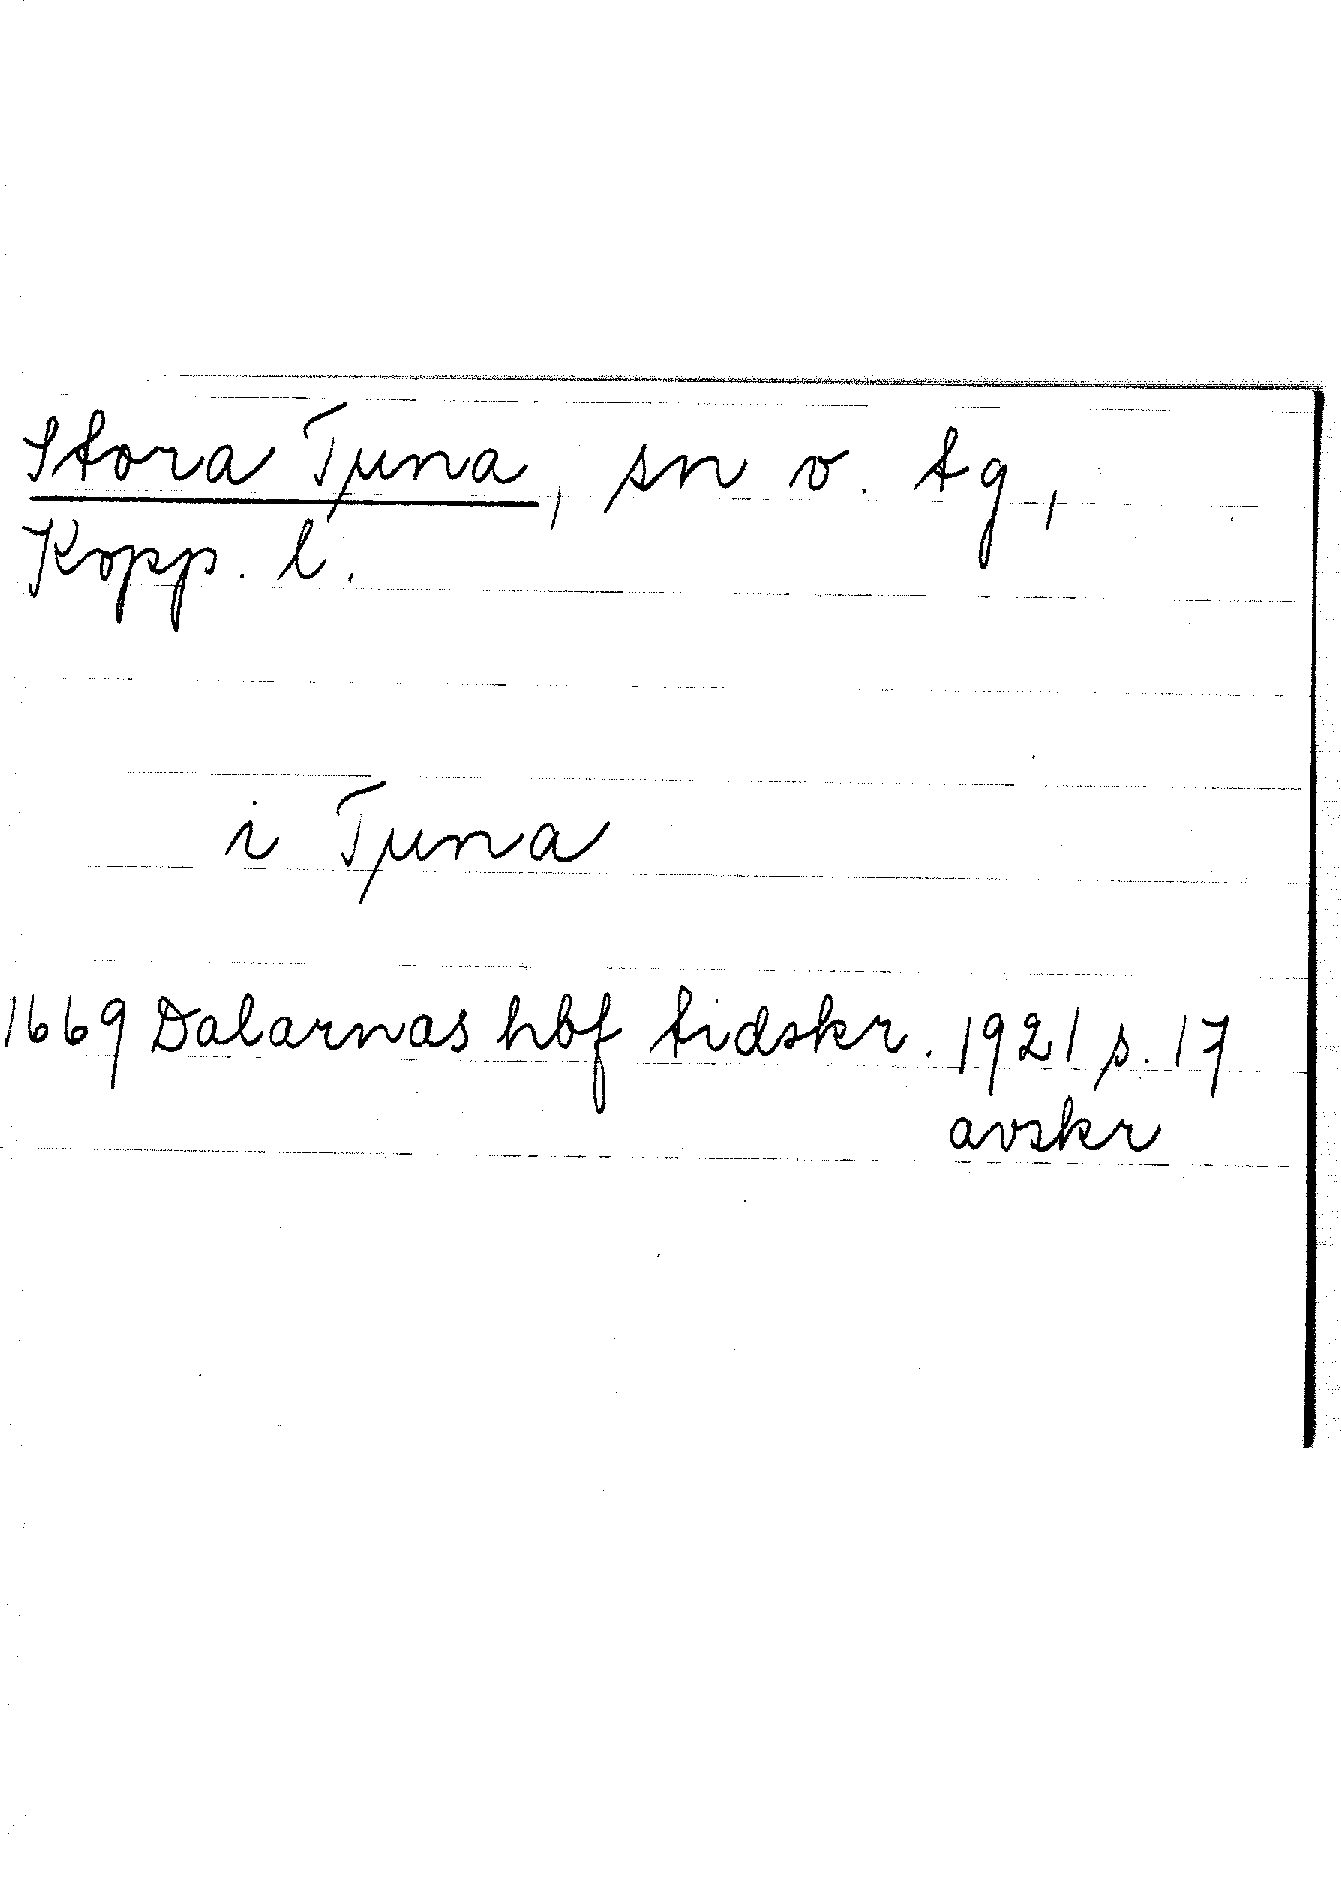 Stora Tuna, sn o. tg,
Kopp. l.
i Tuna
1669 Dalarnas hbf tidskr. 1921 s. 17
avskr